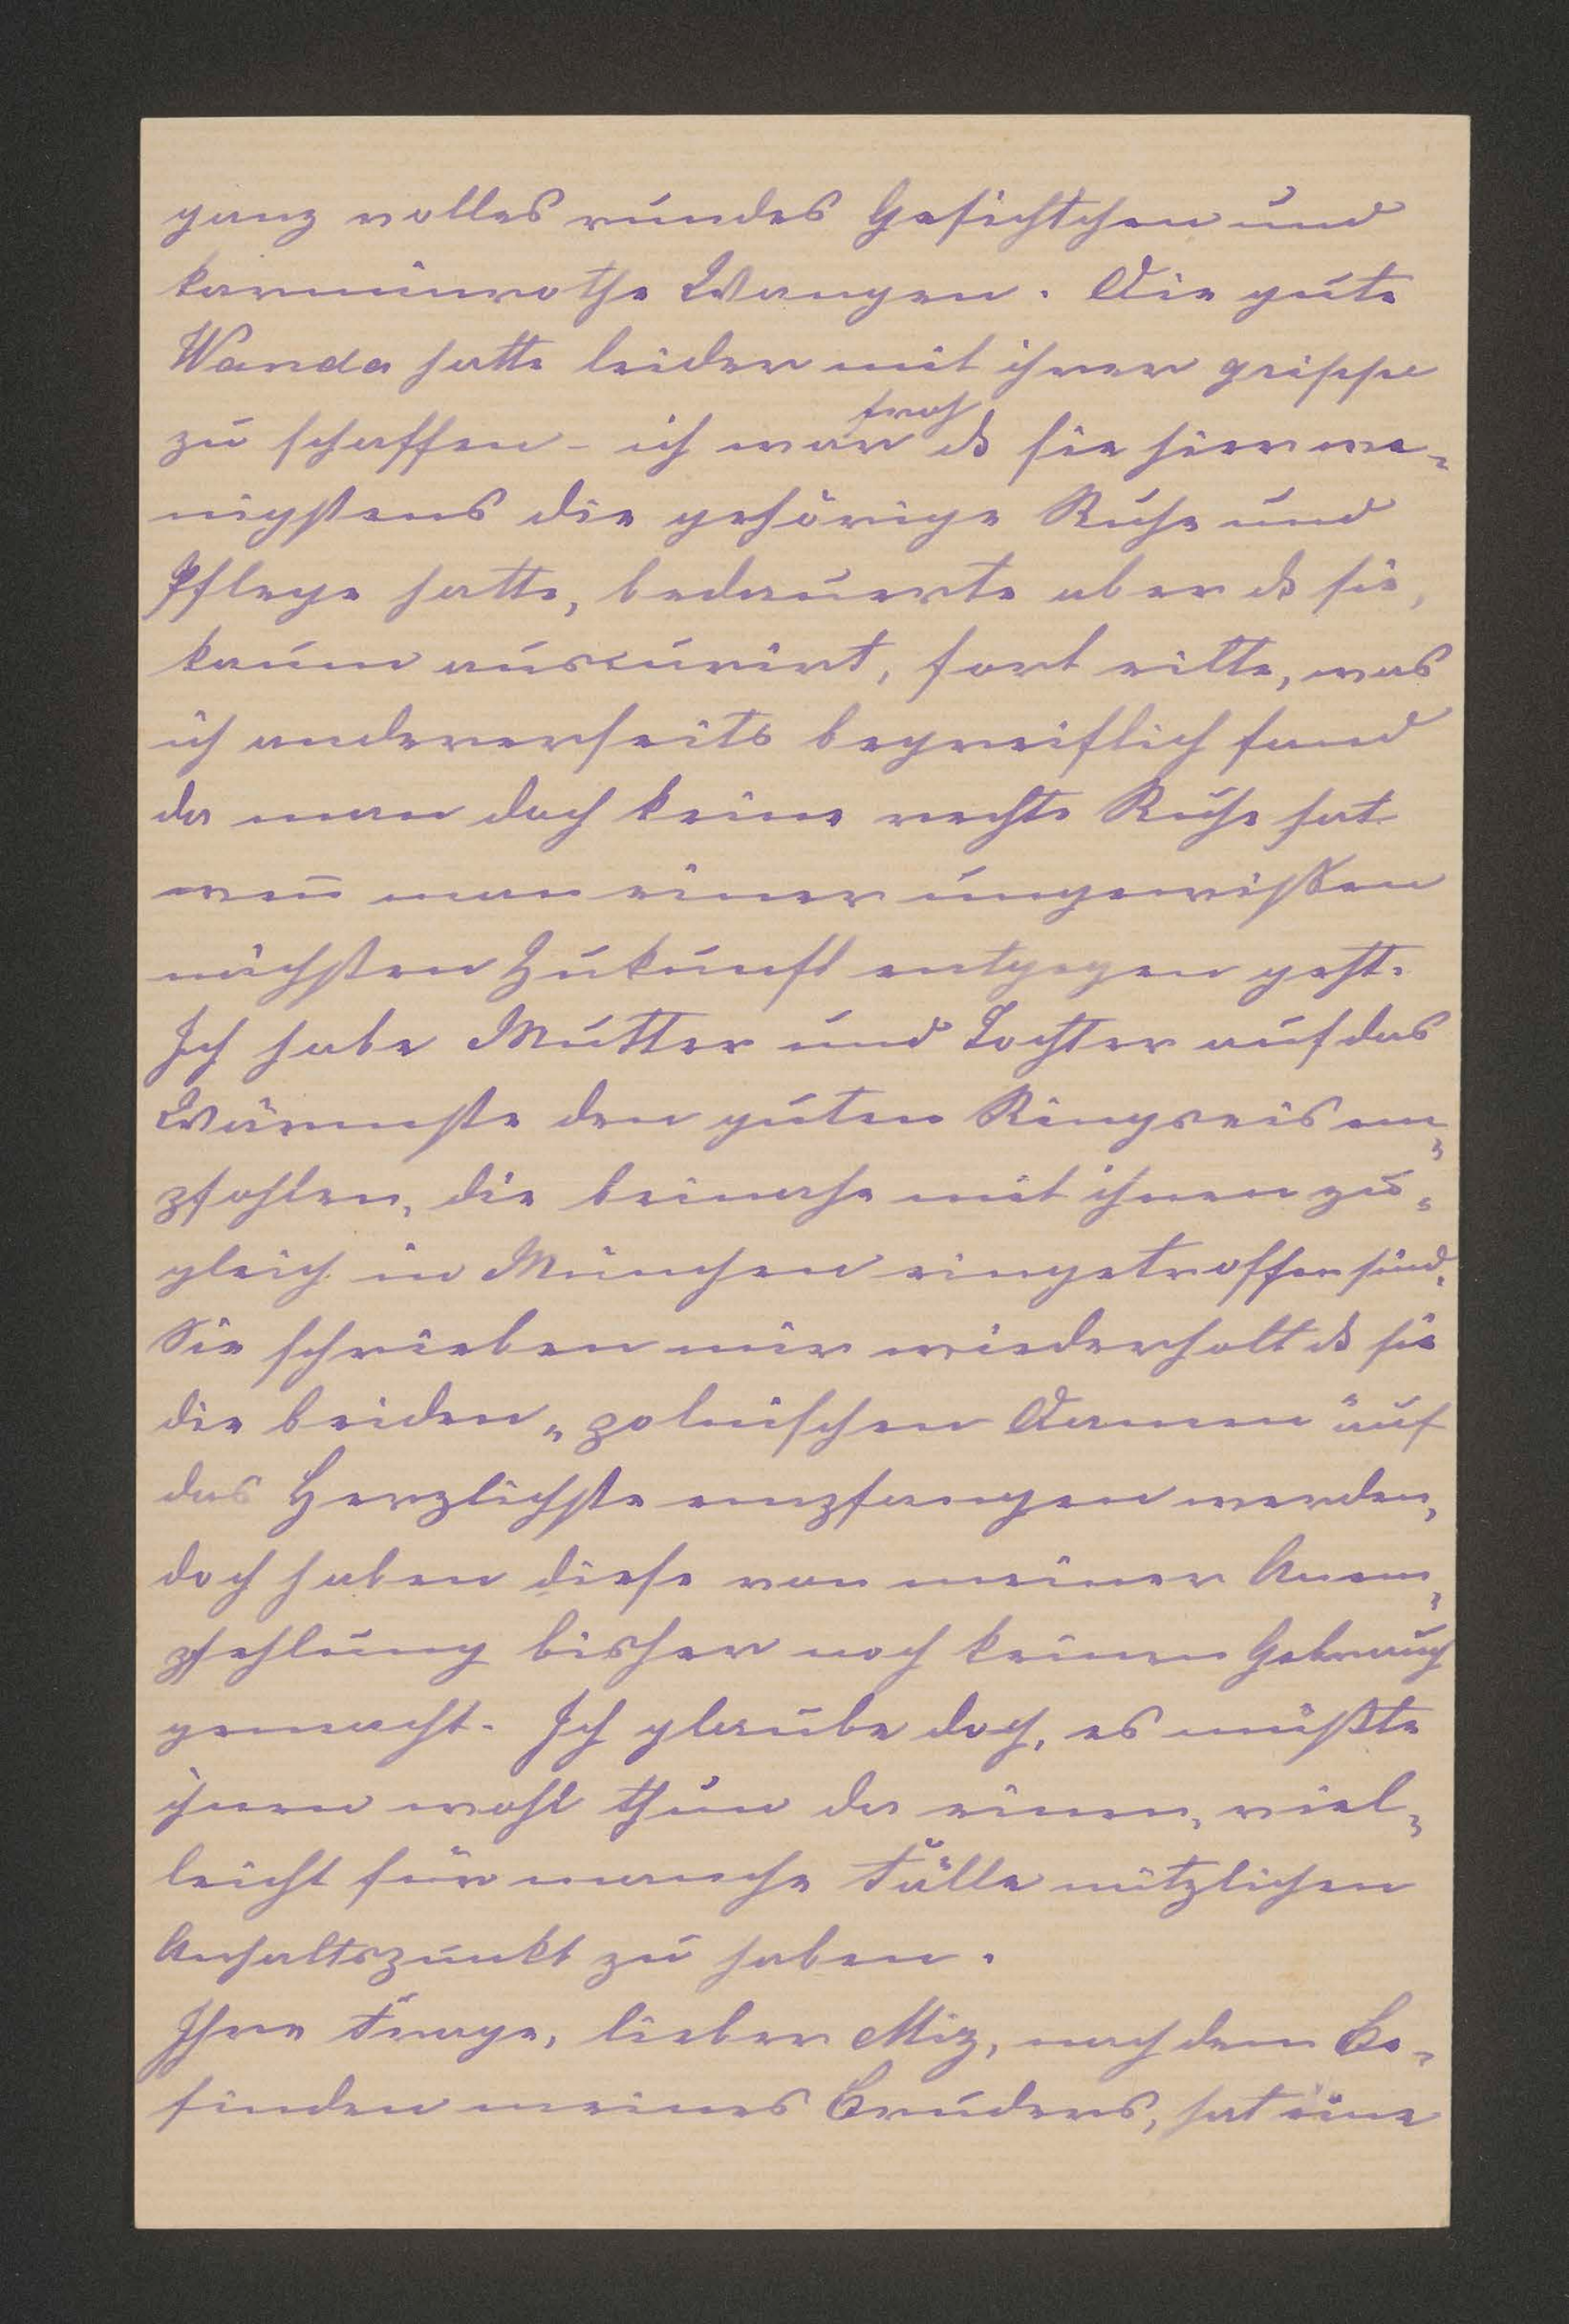 ganz volles rundes Gesichtchen und
karminrothe Wangen. Die gute
Wanda hatte leider mit ihrer grippe
zu schaffen - ich war froh ds sie hier we-
nigstens die gehörige Ruhe und
Pflege hatte, bedauerte aber ds sie,
kaum auscurirt, fort eilte, was
ich andererseits begreiflich fand
da man doch keine rechte Ruhe hat
wen̄ man einer ungewissen
nächsten Zukunft entgegen geht.
Ich habe Mutter und Tochter auf das
Wärmste den guten Ringseis em-
pfohlen, die beinahe mit ihnen zu-
gleich in München eingetroffen sind.
Sie schrieben mir wiederholt ds sie
die beiden „polnischen Damen" auf
das Herzlichste empfangen werden,
doch haben diese von meiner Anem-
pfehlung bisher noch keinen Gebrauch
gemacht. Ich glaube doch, es müßte
ihnen wohl thun da einen, viel-
leicht für manche Fälle nützlichen
Anhaltspunkt zu haben.
Ihre Frage, lieber Miz, nach dem Be-
finden meines Bruders, hat eine